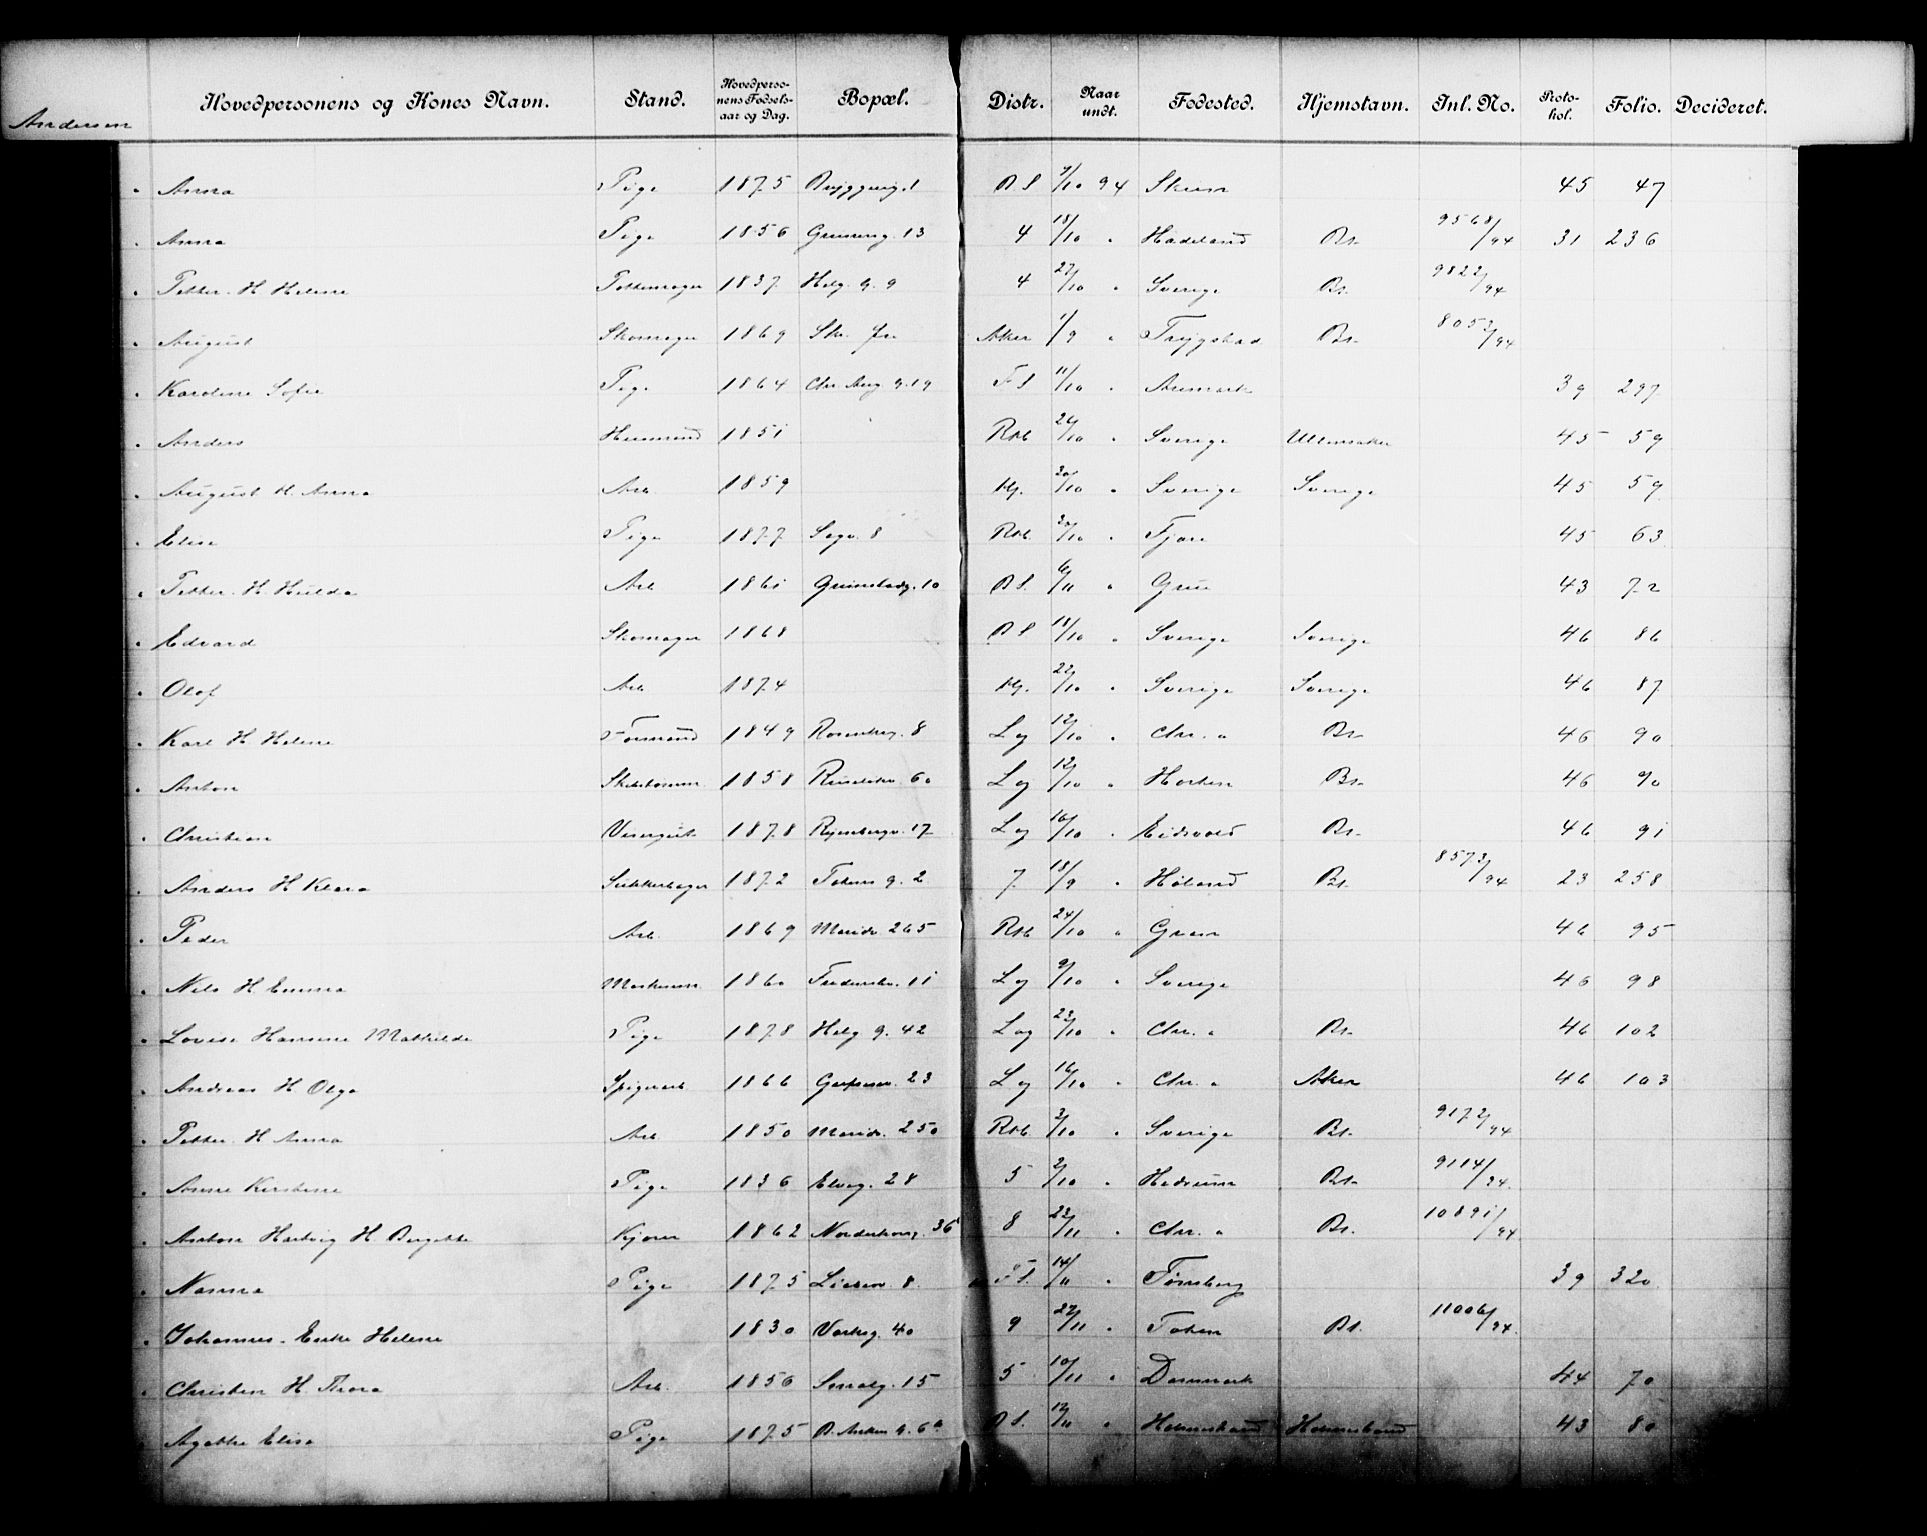 Andersen
Hovedpersonens og Kones Navn. Stand. Hovedpersonens Fødselsaar og Dag. Bopæl. Distr. Naar undt. Fødested. Hjemstavn. Inl. No. Protokol. Folio. Decideret.
" Anna Pige 1875 Bryggerig. 1 BS 7/10 94 45 47
" Anna Pige 1856 Grünerg. 13 4 18/10 " Hadeland Bt. 9568/94 31 236
" Petter H Helene Pottemager 1837 Helg. g. 9 4 27/10 " Sverige Bt. 9822/94
" August Skomager 1869 Aker 1/9 " Trygstad Bt. 8052/94
" Karoline Sofie Pige 1864 Chr Aug. g. 19 FS 11/10 " Aremark 39 297
" Anders 1851 Rst. 24/10 " Sverige Ullensaker 45 59
" August H. Anna Arb. 1859 Hj. 20/10 " Sverige Sverige 45 59
" Elise Pige 1877 Sogv. 8 Rst. 20/10 " 45 63
" Petter H Hulda Arb 1861 Grimstadg. 10 BS. 6/11 " Grue 43 72
" Edvard Skomager 1868 BS 18/10 " Sverige Sverige 46 86
" Olof Arb 1874 Hj. 22/10 " Sverige Sverige 46 87
" Karl H Helene Formand 1849 Rosenbrg. 8 Log 12/10 " Chr. a Bt. 46 90
" Anton 1858 Ruseløkv. 60 Log 12/10 " Horten Bt. 46 90
" Christian Visergut 1878 Ryenbergv. 17 Log 16/10 " Eidsvold Bt. 46 91
" Anders H Klara Sukkerbager 1872 Toteng. 2 7 18/9 " Høland Bt. 8573/94 23 258
" Peder Arb. 1869 Maridv. 265 Rst 24/10 " Gran 46 95
" Nils H. Emma Maskinm. 1860 Fredensbv. 11 Log 9/10 " Sverige 46 98
" Lovise Hansine Mathilde Pige 1878 Helg g. 42 Log 23/10 " Chr. a Bt. 46 102
" Andreas H Olga Spigerarb 1866 23 Log 16/10 " Chr. a Aker 46 103
" Petter H Anna Arb. 1850 Maridv. 250 Rst. 3/10 " Sverige Bt. 9172/94
" Anne Kirstine Pige 1836 Elveg. 28 5 2/10 " Hedrum Bt. 9114/94.
" Anton Hartvig H Bergitte Kjører 1862 Norderhovg. 36 8 22/11 " Chr. a Bt. 10891/94
" Nanna Pige 1875 8. FS. 14/11 " Tønsberg 39 320
" Johannes. Enke Helene 1830 Vaktsg. 40 9 27/11 " Toten Bt. 11006/94.
" Christen H. Thora Arb. 1856 Sorralg. 15 5 10/11 " Danmark 44 70
" Agathe Elise Pige 1875 B. Ankers g. 6a BS. 12/11 " Holmestrand Holmestrand 43 80